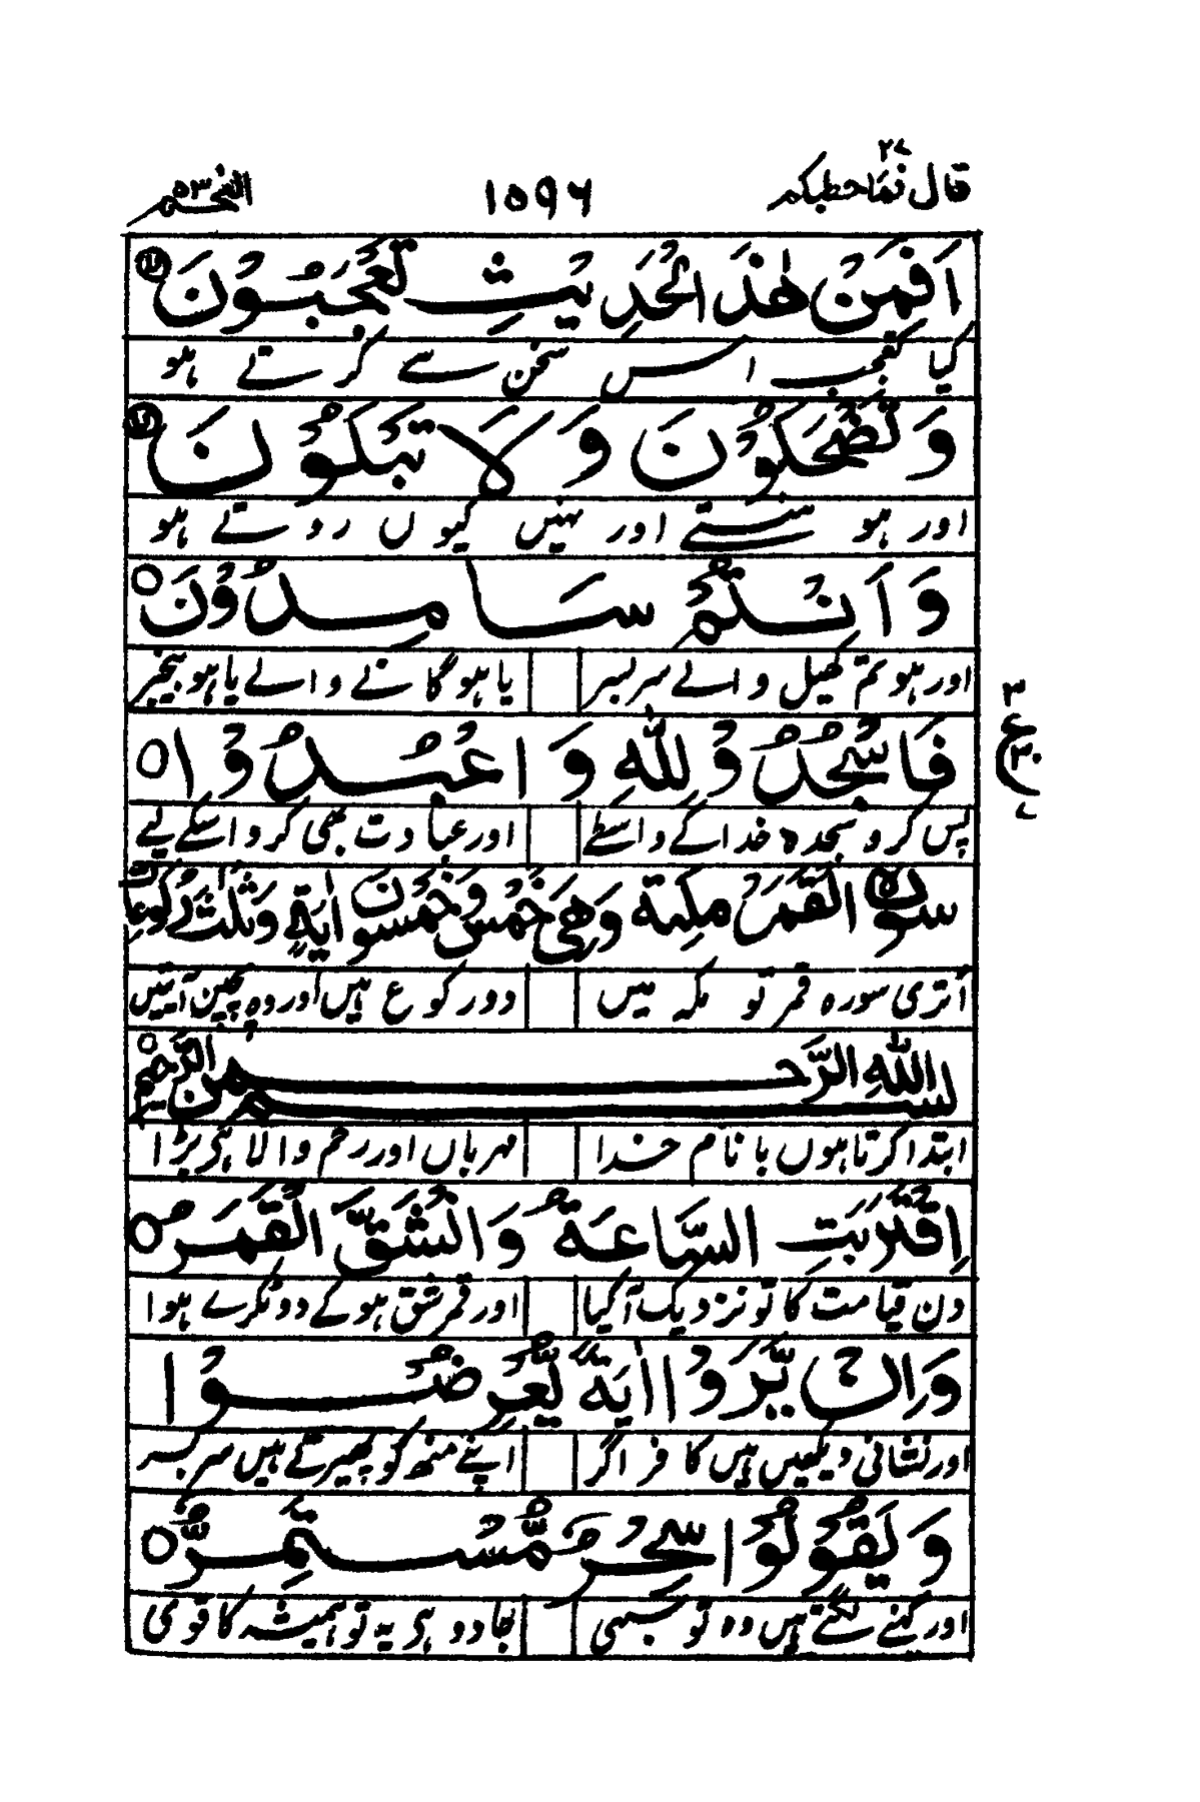 قال فما خطبكم ۲۷ ۱۵۹۶ النجم ۵۳
اَفَمِنْ هٰذَا الْحَدِيْثِ تَعْجَبُوْنَ
کیا تعجب اس سخن سے کرتے ہو
وَتَضْحَكُوْنَ وَلَا تَبْكُوْنَ
اور ہو ہنستے اور نہیں کیوں روتے ہو
وَاَنْتُمْ سَامِدُوْنَ ○
اور ہو تم کھیل والے سربسر یا ہو گانے والے یا ہو بیخبر
فَاسْجُدُوْا لِلّٰهِ وَاعْبُدُوْا ○
۳ ع ۳۰ ۷
پس کرو سجدہ خدا کے واسطے اور عبادت بھی کرو اسکے لیے
سورة القمر مكية وهي خمس وخمسون اٰية وثلث ركوعات
اتری سورہ قمر تو مکہ میں دور کوع ہیں اور وہ پچپن آیتیں
بسم اللهِ الرَّحمٰن الرَّحِيْم ○
ابتدا کرتا ہوں با نام خدا مہرباں اور رحم والا ہی بڑا
اِقْتَرَبَتِ السَّاعَةُ وَانْشَقَّ الْقَمَرُ ○
دن قیامت کا تو نزدیک آ گیا اور قمر شق ہو کے دو ٹکڑے ہوا
وَاِنْ يَّرَوْا اٰيَةً يُّعْرِضُوْا
اور نشانی دیکھیں ہیں کافر اگر اپنے منھ کو پھیرتے ہیں سربسر
وَيَقُوْلُوْا سِحْرٌ مُّسْتَمِرٌّ ○
اور کہنے لگتے ہیں وہ تو سبھی جادو ہی یہ تو ہمیشہ کا قوی